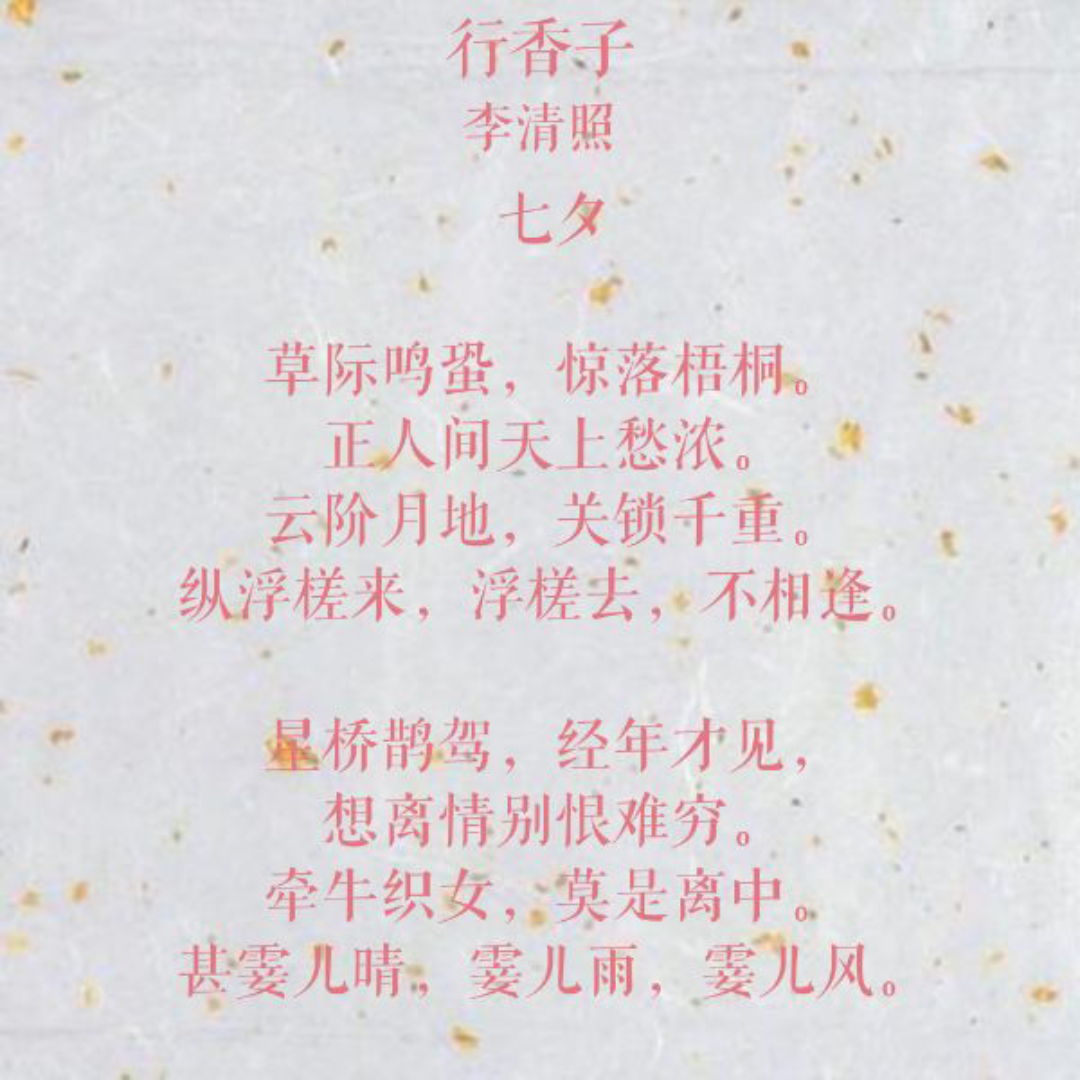 行香子
李清照
七夕
草际鸣蛩，惊落梧桐。
正人间天上愁浓。
云阶月地，关锁千重。
纵浮槎来，浮槎去，不相逢。
星桥鹊驾，经年才见，
想离情别恨难穷。
牵牛织女，莫是离中。
甚霎儿晴，霎儿雨，霎儿风。